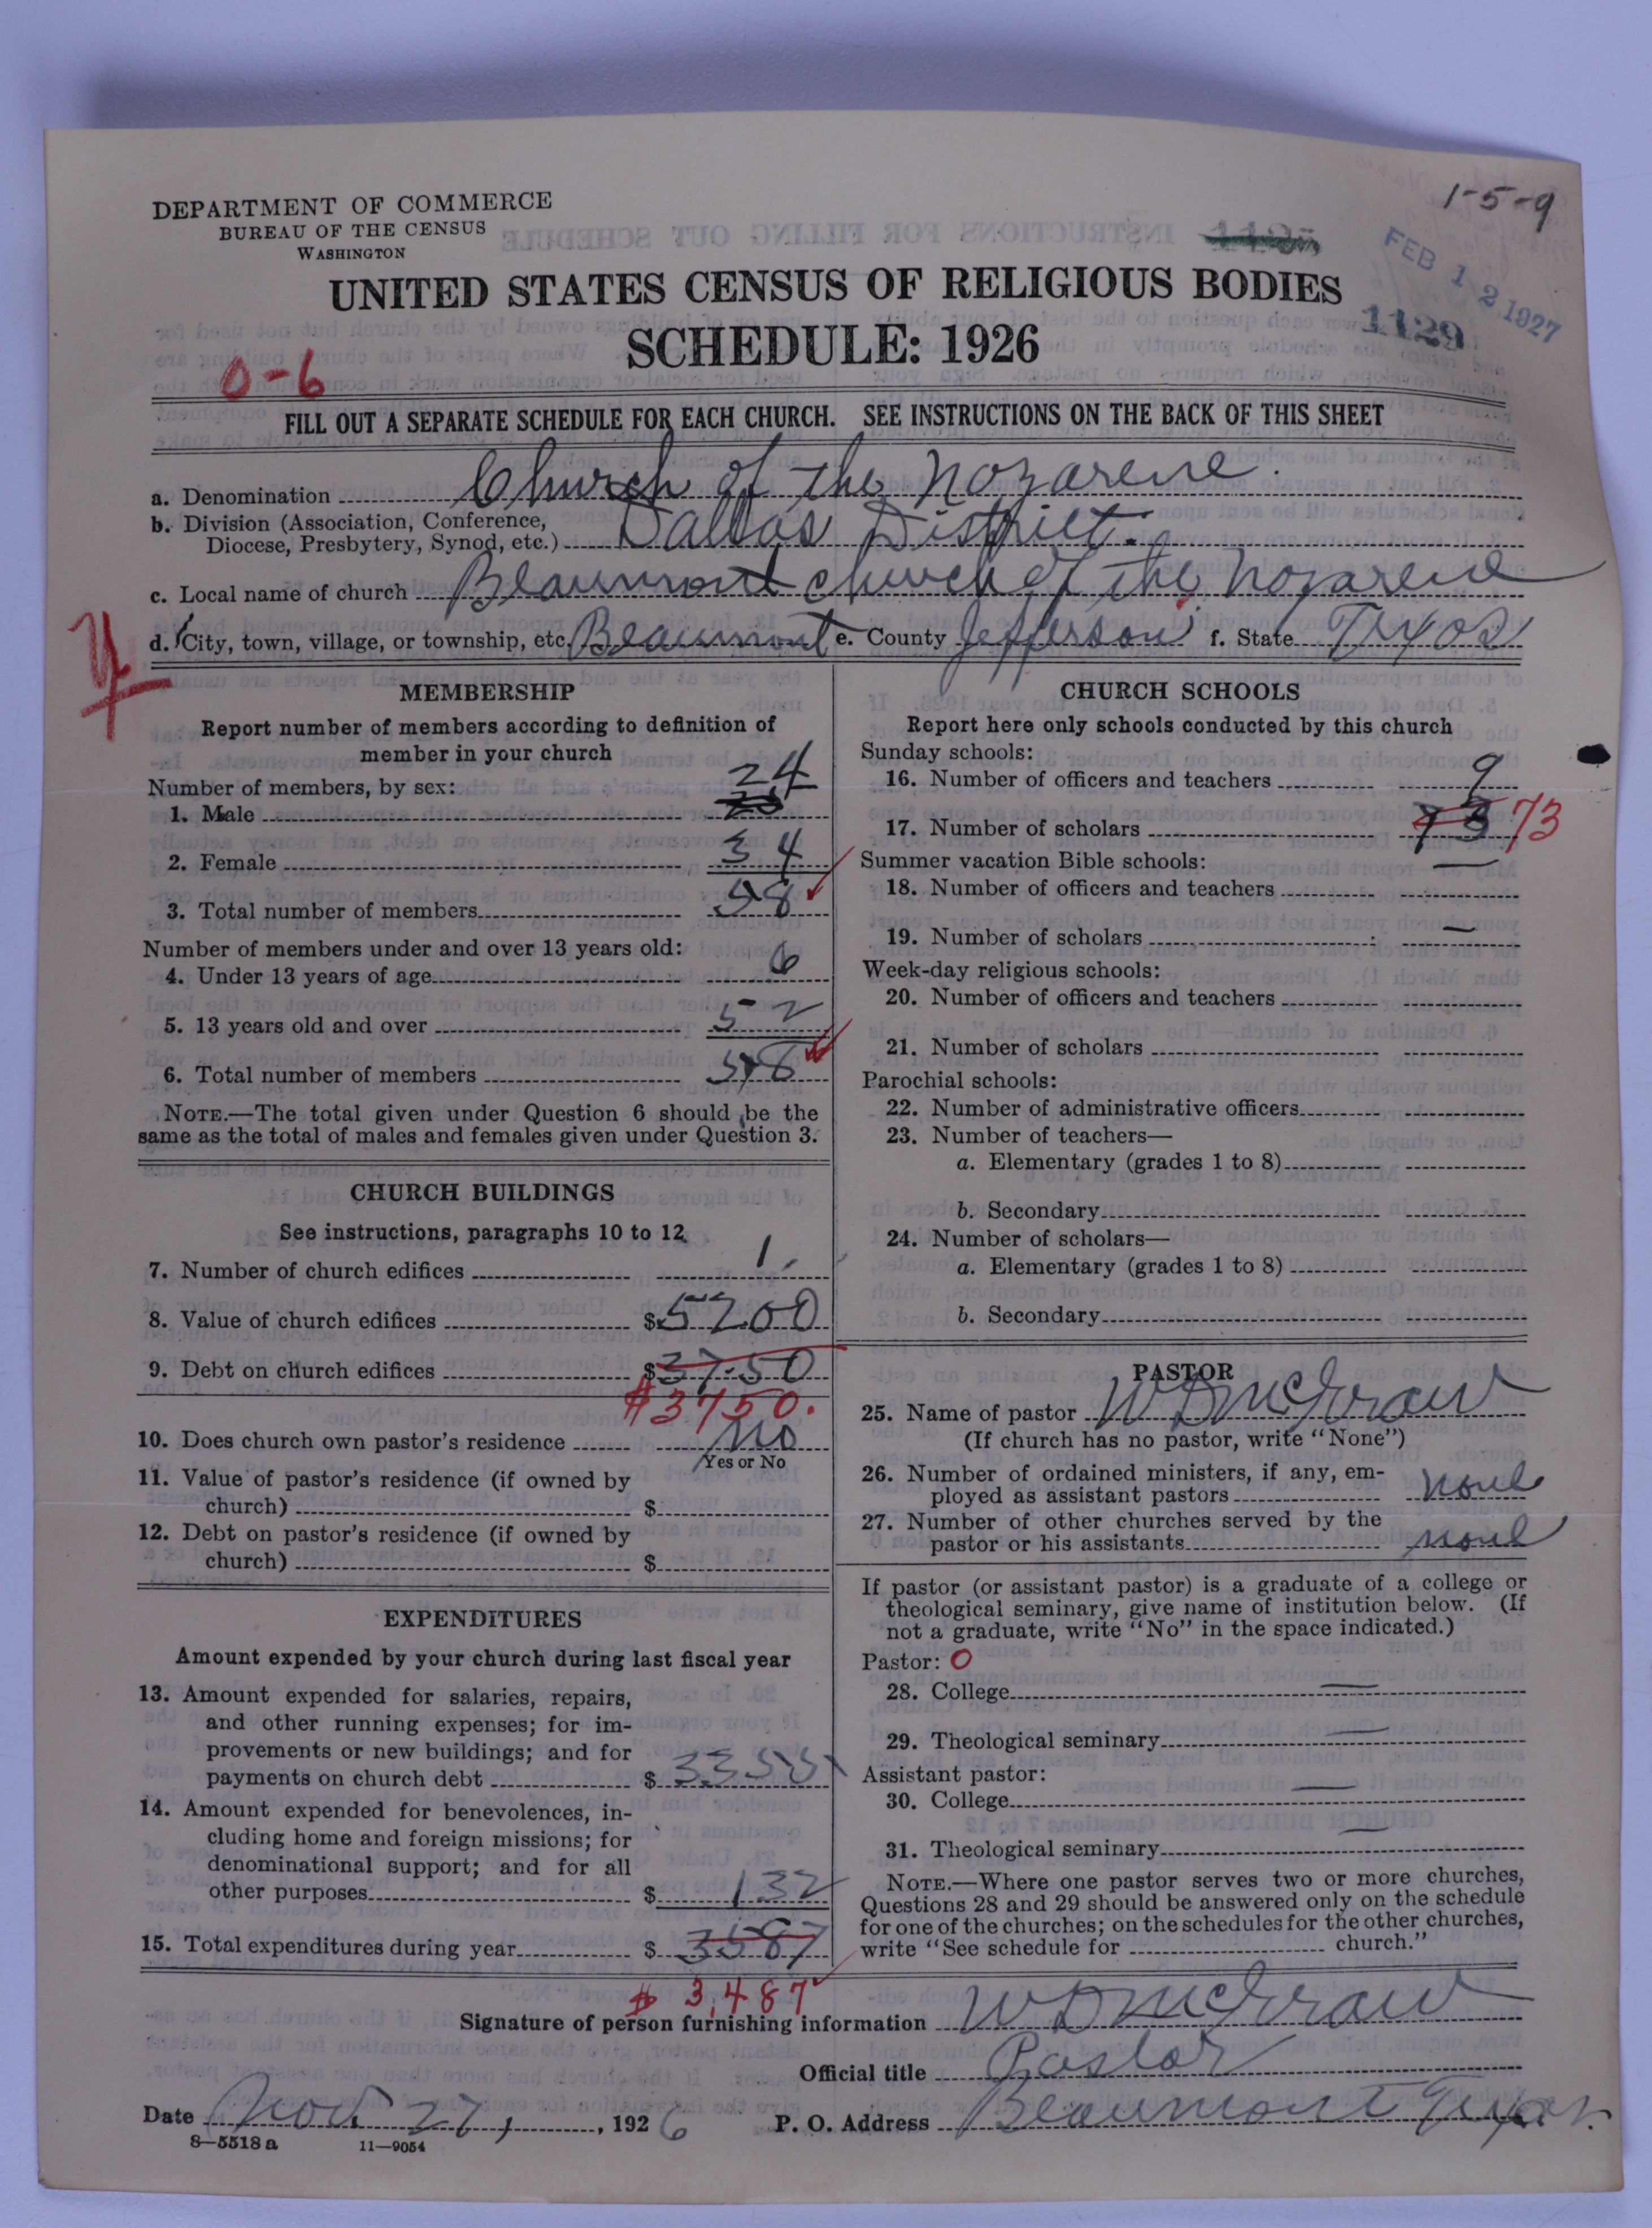 1-5-9
DEPARTMENT OF COMMERCE
BUREAU OF THE CENSUS
WASHINGTON
FEB 12 1927
1129
UNITED STATES CENSUS OF RELIGIOUS BODIES
SCHEDULE: 1926
0-6
FILL OUT A SEPARATE SCHEDULE FOR EACH CHURCH. SEE INSTRUCTIONS ON THE BACK OF THIS SHEET
a. Denomination Church of the Nozarene.
b. Division (Association, Conference,
Diocese, Presbytery, Synod, etc.) Dallas District.
c. Local name of church Beaumont church of the Nozarene
d. City, town, village, or township, etc. Beaumont e. County Jefferson f. State Texas
MEMBERSHIP
Report number of members according to definition of
member in your church
Number of members, by sex:
1. Male 24
2. Female 34
3. Total number of members 58
Number of members under and over 13 years old:
4. Under 13 years of age 6
5. 13 years old and over 52
6. Total number of members 58
NOTE.—The total given under Question 6 should be the
same as the total of males and females given under Question 3.
CHURCH BUILDINGS
See instructions, paragraphs 10 to 12
7. Number of church edifices 1
8. Value of church edifices $5200
9. Debt on church edifices $3750
$3750.
10. Does church own pastor's residence No
Yes or No
11. Value of pastor's residence (if owned by
church) $
12. Debt on pastor's residence (if owned by
church) $
EXPENDITURES
Amount expended by your church during last fiscal year
13. Amount expended for salaries, repairs,
and other running expenses; for im-
provements or new buildings; and for
payments on church debt $ 3355
14. Amount expended for benevolences, in-
cluding home and foreign missions; for
denominational support; and for all
other purposes $ 132
15. Total expenditures during year $ 3587
$ 3,487
CHURCH SCHOOLS
Report here only schools conducted by this church
Sunday schools:
16. Number of officers and teachers 9
17. Number of scholars 73 73
Summer vacation Bible schools:
18. Number of officers and teachers —
19. Number of scholars —
Week-day religious schools:
20. Number of officers and teachers
21. Number of scholars
Parochial schools:
22. Number of administrative officers
23. Number of teachers—
a. Elementary (grades 1 to 8)
b. Secondary
24. Number of scholars—
a. Elementary (grades 1 to 8)
b. Secondary
PASTOR
25. Name of pastor W D McGraw
(If church has no pastor, write "None")
26. Number of ordained ministers, if any, em-
ployed as assistant pastors None
27. Number of other churches served by the
pastor or his assistants None
If pastor (or assistant pastor) is a graduate of a college or
theological seminary, give name of institution below. (If
not a graduate, write "No" in the space indicated.)
Pastor: 0
28. College —
29. Theological seminary —
Assistant pastor:
30. College —
31. Theological seminary —
NOTE.—Where one pastor serves two or more churches,
Questions 28 and 29 should be answered only on the schedule
for one of the churches; on the schedules for the other churches,
write "See schedule for church."
Signature of person furnishing information W D McGraw
Official title Pastor
Date Nov. 27, 1926 P. O. Address Beaumont Texas.
8—5518 a 11—9054